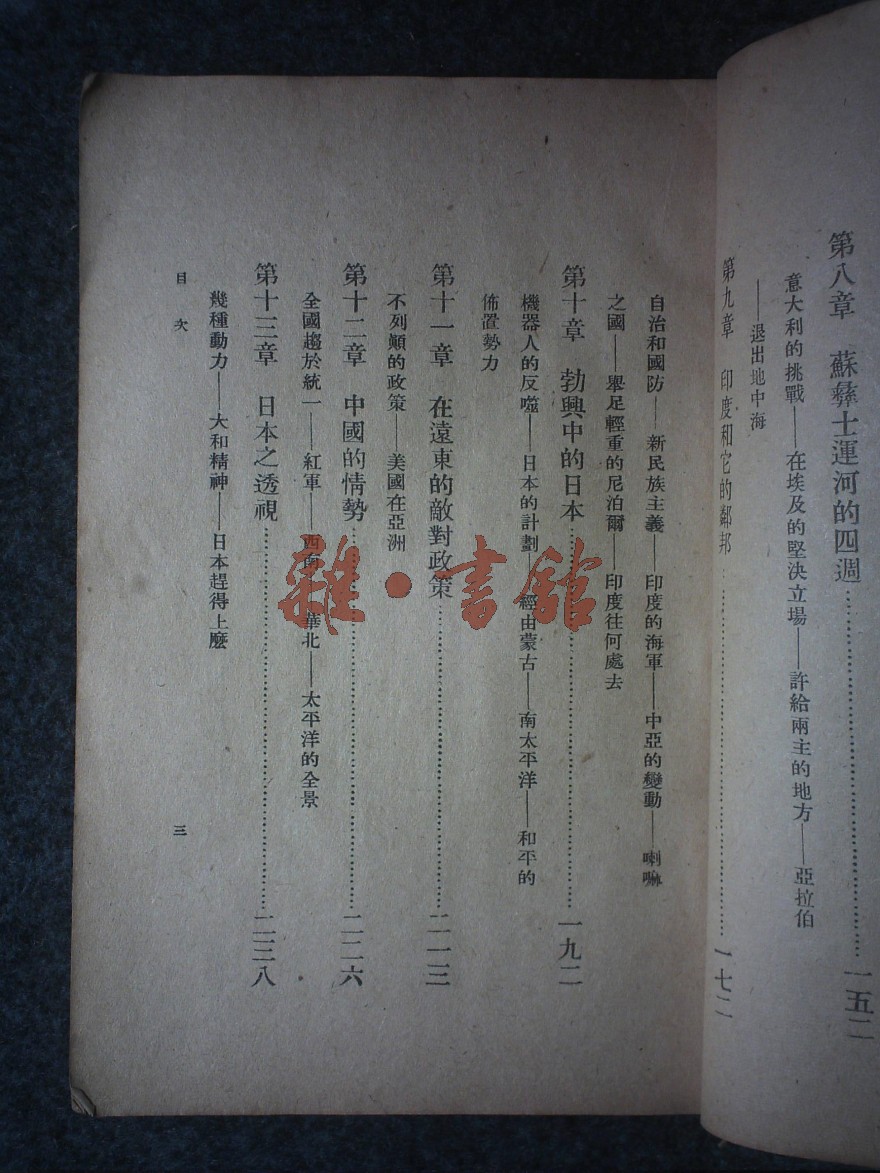 第八章 蘇彝士運河的四週……一五二
意大利的挑戰——在埃及的堅決立場——許給兩主的地方——亞拉伯
——退出地中海
第九章 印度和它的鄰邦……一七二
自治和國防——新民族主義——印度的海軍——中亞的變動——喇嘛
之國——舉足輕重的尼泊爾——印度往何處去
第十章 勃興中的日本……一九二
機器人的反噬——日本的計劃——經由蒙古——南太平洋——和平的
佈置勢力
第十一章 在遠東的敵對政策……二一三
不列顛的政策——美國在亞洲
第十二章 中國的情勢……二二六
全國趨於統一——紅軍——西南——華北——太平洋的全景
第十三章 日本之透視……二三八
幾種動力——大和精神——日本趕得上麼
目次 三
雜·書館